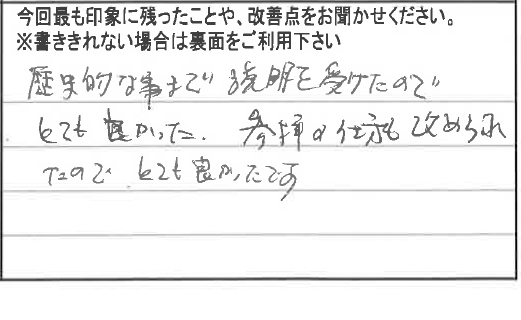 今回最も印象に残ったことや、改善点をお聞かせください。
※書ききれない場合は裏面をご利用下さい
歴史的な事まで説明を受けたので
とても良かった。参拝の仕方も改められ
たので、とても良かったです